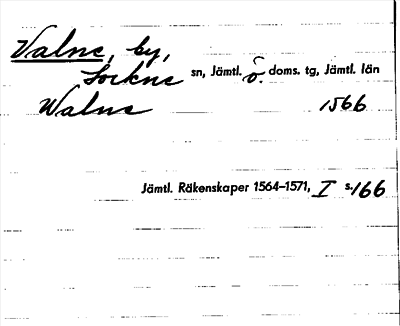 Valne, by,
Lockne sn, Jämtl. ö. doms. tg, Jämtl. län
Walne 1566
Jämtl. Räkenskaper 1564–1571, I s. 166